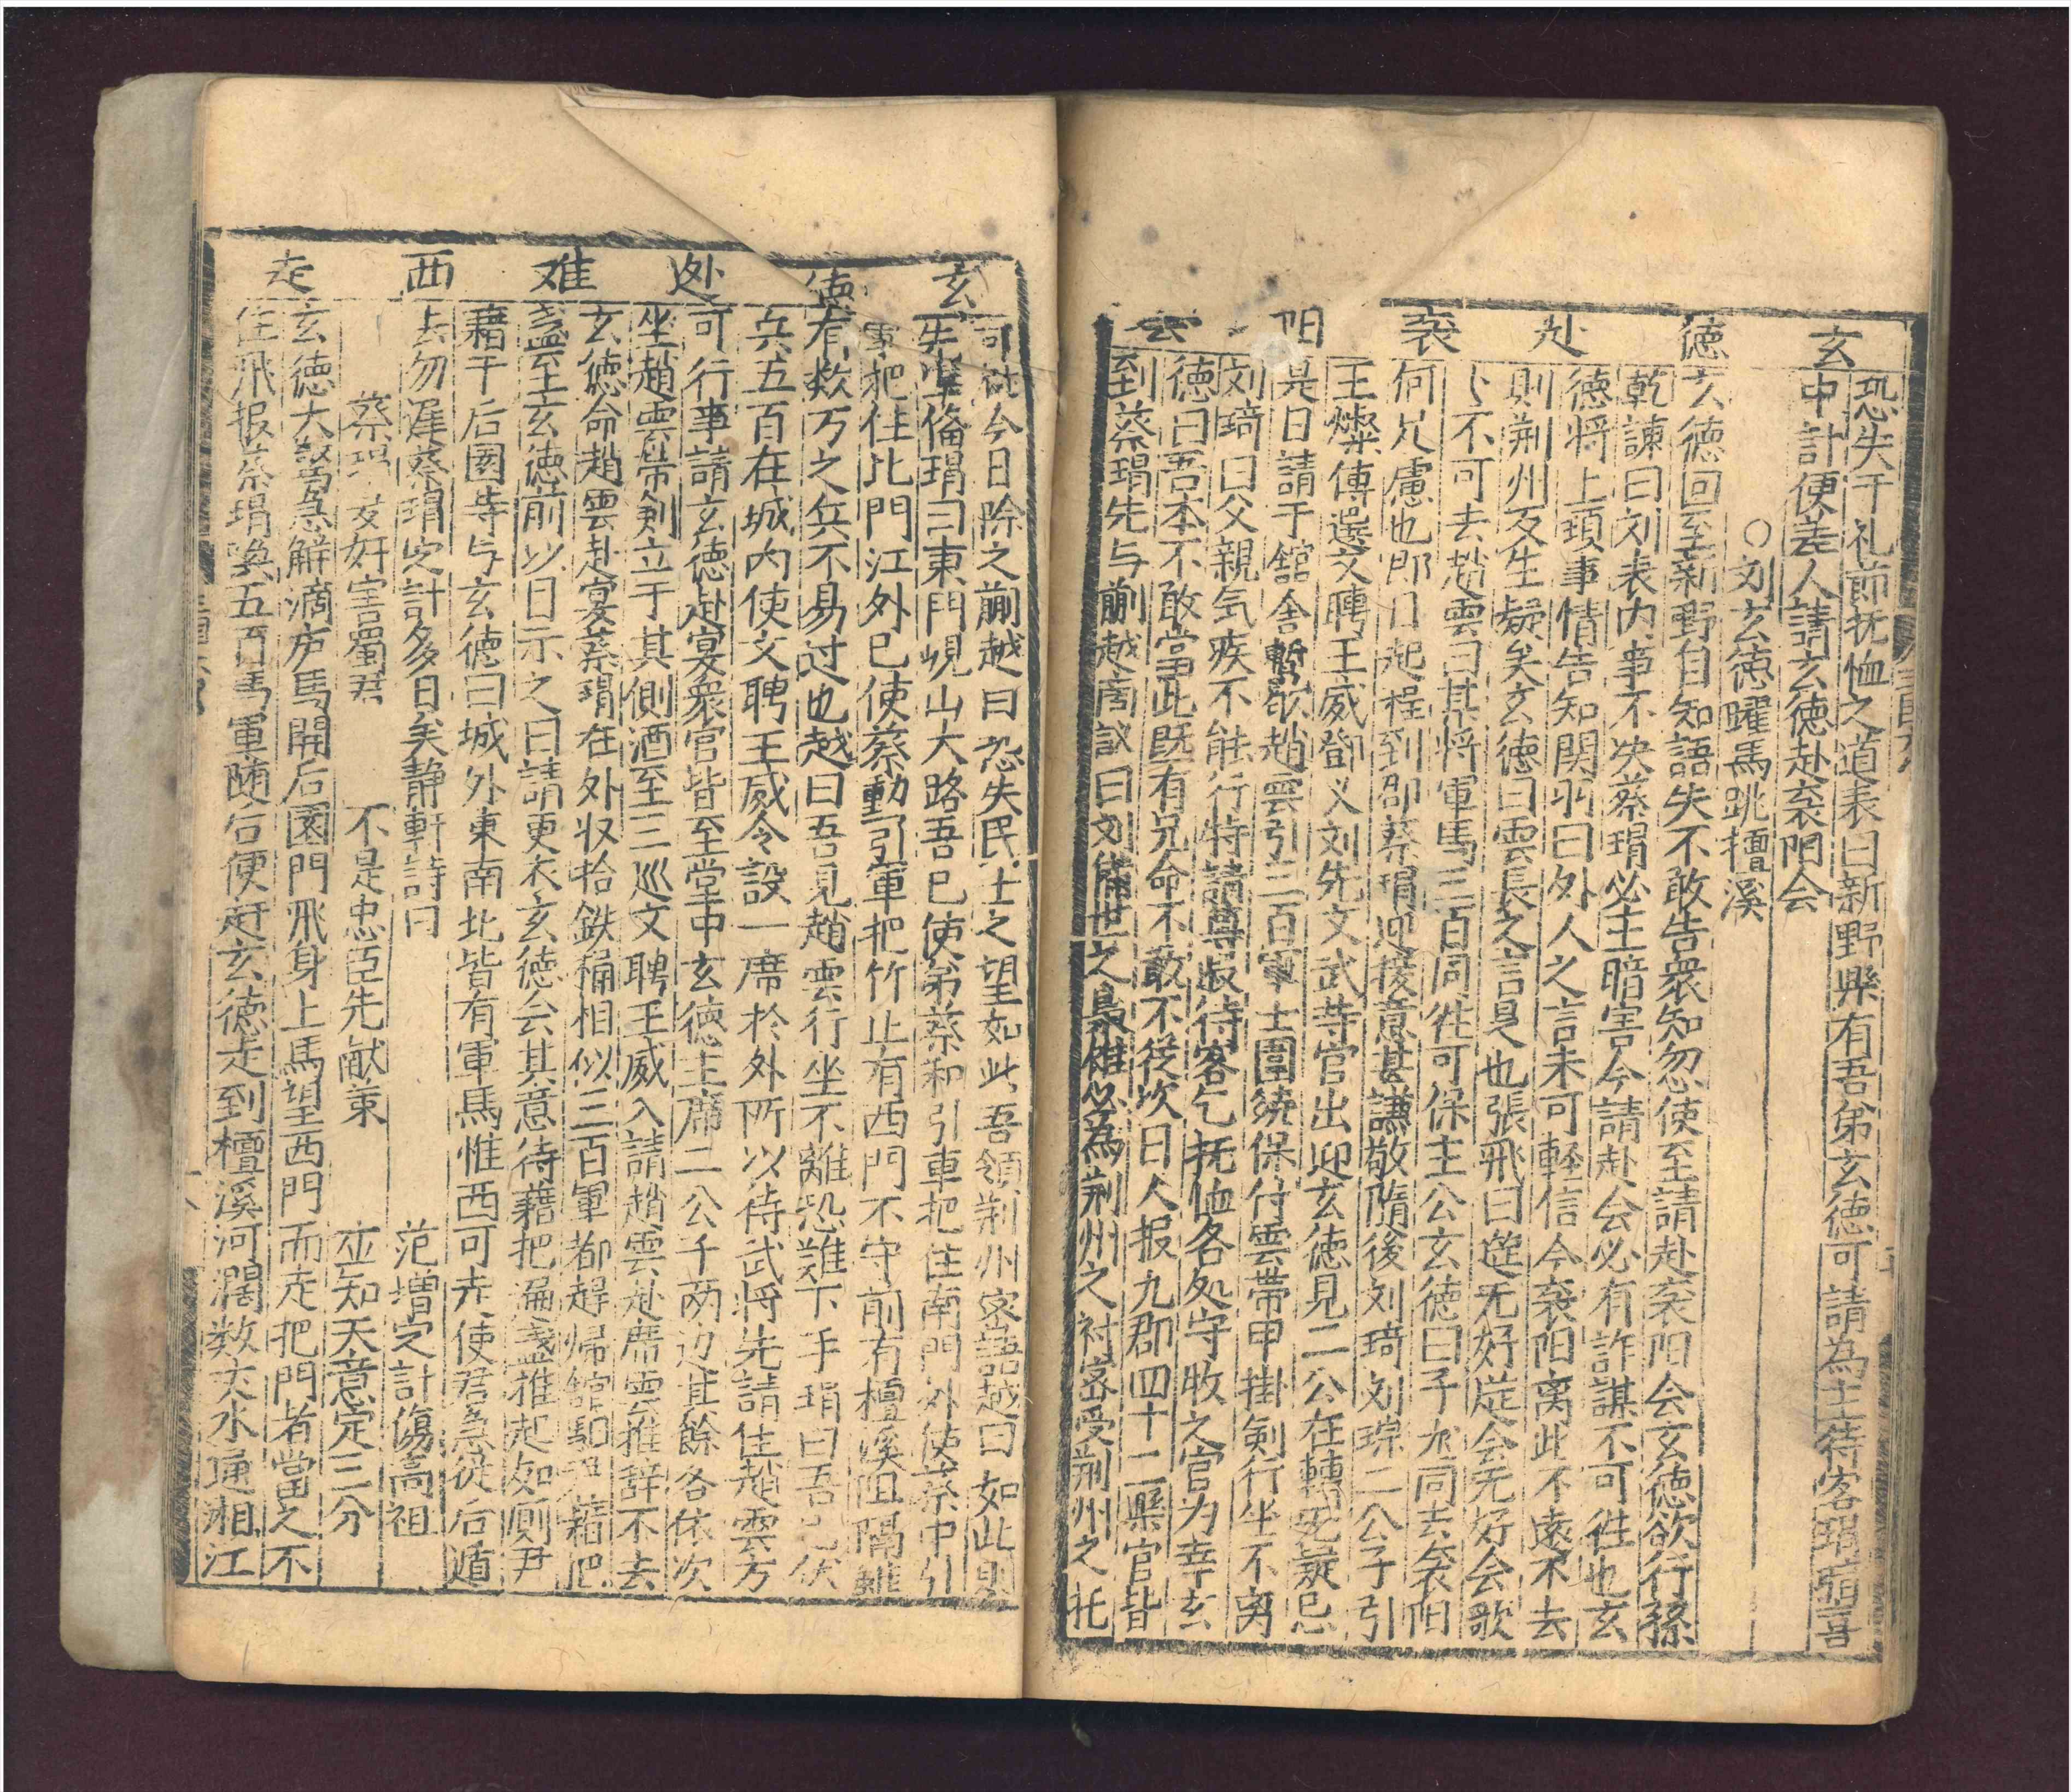 玄德赴袞阳会
恐失于礼節抚恤之道表曰新野縣有吾弟玄德可請為主待客瑁暗喜
中計便差人請玄德赴袞阳会
○刘玄德躍馬跳檀溪
玄德回至新野自知語失不敢告衆知忽使至請赴袞阳会玄德欲行孫
乾諫曰刘表内事不决蔡瑁必主暗害今請赴会必有詐謀不可徃也玄
德将上項事情告知関羽曰外人之言未可軽信今袞阳离此不遠不去
則荆州反生疑矣玄德曰雲長之言是也張飛曰筵无好筵会无好会歌
卜不可去趙雲曰某将軍馬三百同徃可保主公玄德曰子龙同去袞阳
何足慮也即日起程到郡蔡瑁迎接意甚謙敬隋後刘琦刘琮二公子引
王燦傅選文聘王威鄧义刘先文武等官出迎玄德見二公在轉无疑忌
是日請于舘舍暫歇趙雲引三百軍士圍繞保付雲帶甲掛剣行坐不离
刘琦曰父親気疾不能行特請尊叔待客乞抚恤各処守牧之官为幸玄
德曰吾本不敢當此既有兄命不敢不從次日人报九郡四十二縣官皆
到蔡瑁先与蒯越商議曰刘俻世之梟雄必為荆州之
玄德处难西走
可就今日除之蒯越曰恐失民士之望如此吾領荆州密語越曰如此則
先準俻瑁曰東門峴山大路吾已使弟蔡和引軍把住南門外使蔡中引
軍把住北門江外已使蔡勳引軍把竹止有西門不守前有檀溪阻隔雖
有数万之兵不易过也越曰吾見趙雲行坐不離恐難下手瑁曰吾已伏
兵五百在城内使文聘王威令設一席於外所以待武将先請住趙雲方
可行事請玄德赴宴衆官皆至堂中玄德主席二公子两边其餘各依次
坐趙雲帶剣立于其側酒至三巡文聘王威入請趙雲赴席雲推辞不去
玄德命趙雲赴宴蔡瑁在外収拾鉄桶相似三百軍都趕歸舘驛尹藉把
盞至玄德前以目示之曰請更衣玄德会其意待藉把遍盞推起如厠尹
藉于后園等与玄德曰城外東南北皆有軍馬惟西可走使君急從后遁
去勿遲蔡瑁定計多日矣静軒詩曰
范增定計傷高祖
蔡瑁 奸害蜀君
不是忠臣先献策
並知天意定三分
玄德大驚急解滴庐馬開后園門飛身上馬望西門而走把門者當之不
住飛报蔡瑁喚五百馬軍随后便赶玄德走到檀溪河濶数丈水通湘江